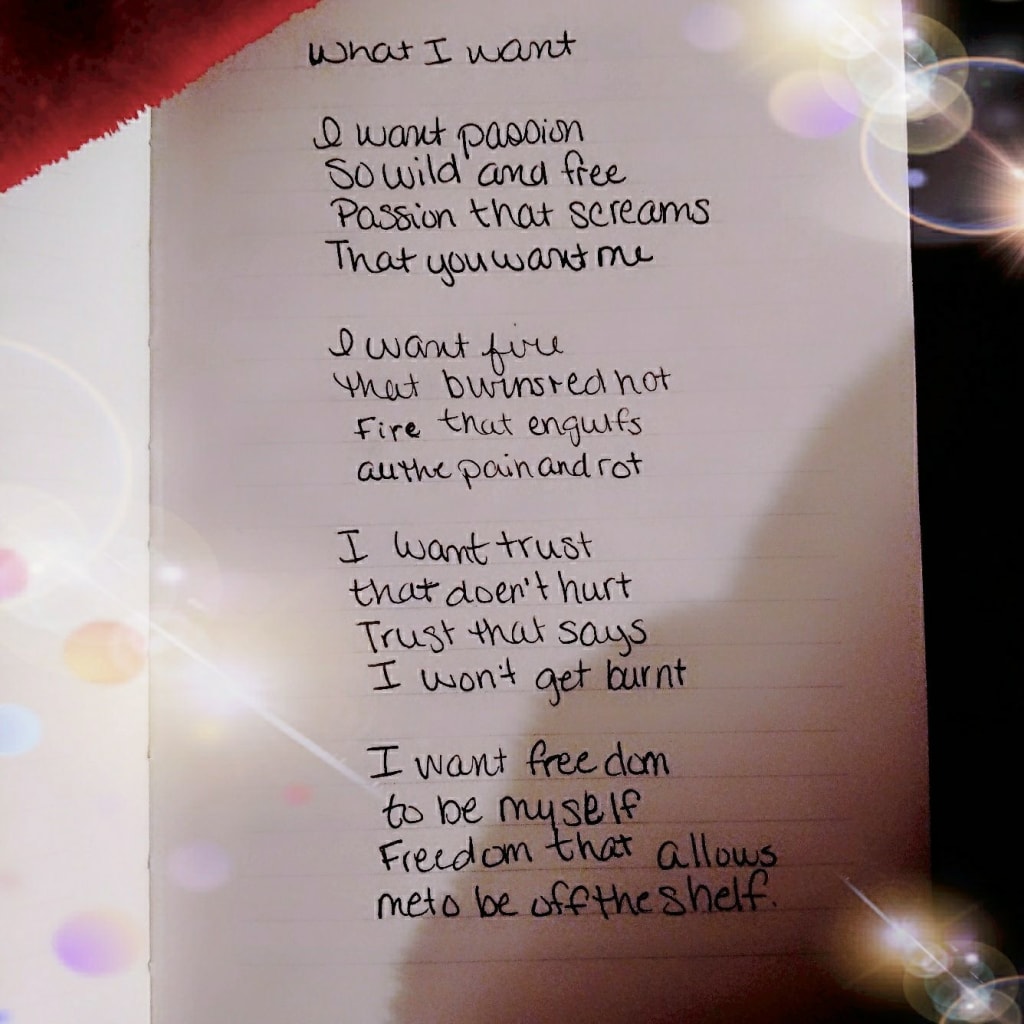 What I want
I want passion
So wild and free
Passion that screams
That you want me
I want fire
that burns red hot
Fire that engulfs
all the pain and rot
I want trust
that doen't hurt
Trust that says
I won't get burnt
I want freedom
to be myself
Freedom that allows
me to be off the shelf.